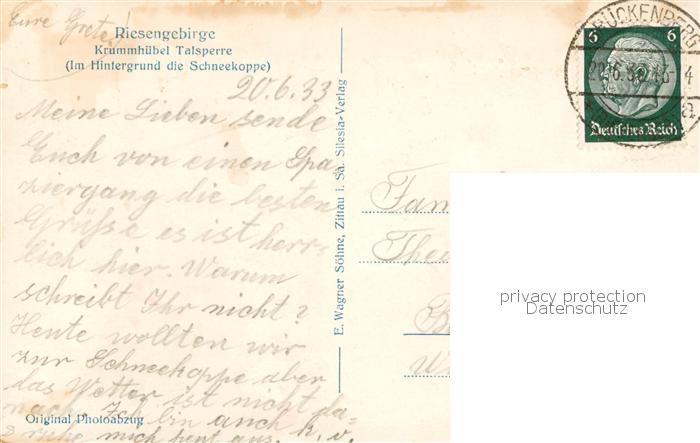 Eure Grete!
Riesengebirge
Krummhübel Talsperre
(Im Hintergrund die Schneekoppe)
20.6.33
Meine Lieben sende
Euch von einen Spa-
ziergang die besten
Grüsse es ist herr-
lich hier. Warum
schreibt Ihr nicht?
Heute wollten wir
zur Schneekoppe aber
das Wetter ist nicht da-
nach. Ich bin auch k. v.
mich heut aus.
Original Photoabzug
E. Wagner Söhne, Zittau i. Sa. Silesia-Verlag
BRÜCKENBERG
6 6
Deutsches Reich
Fam
privacy protection
Datenschutz